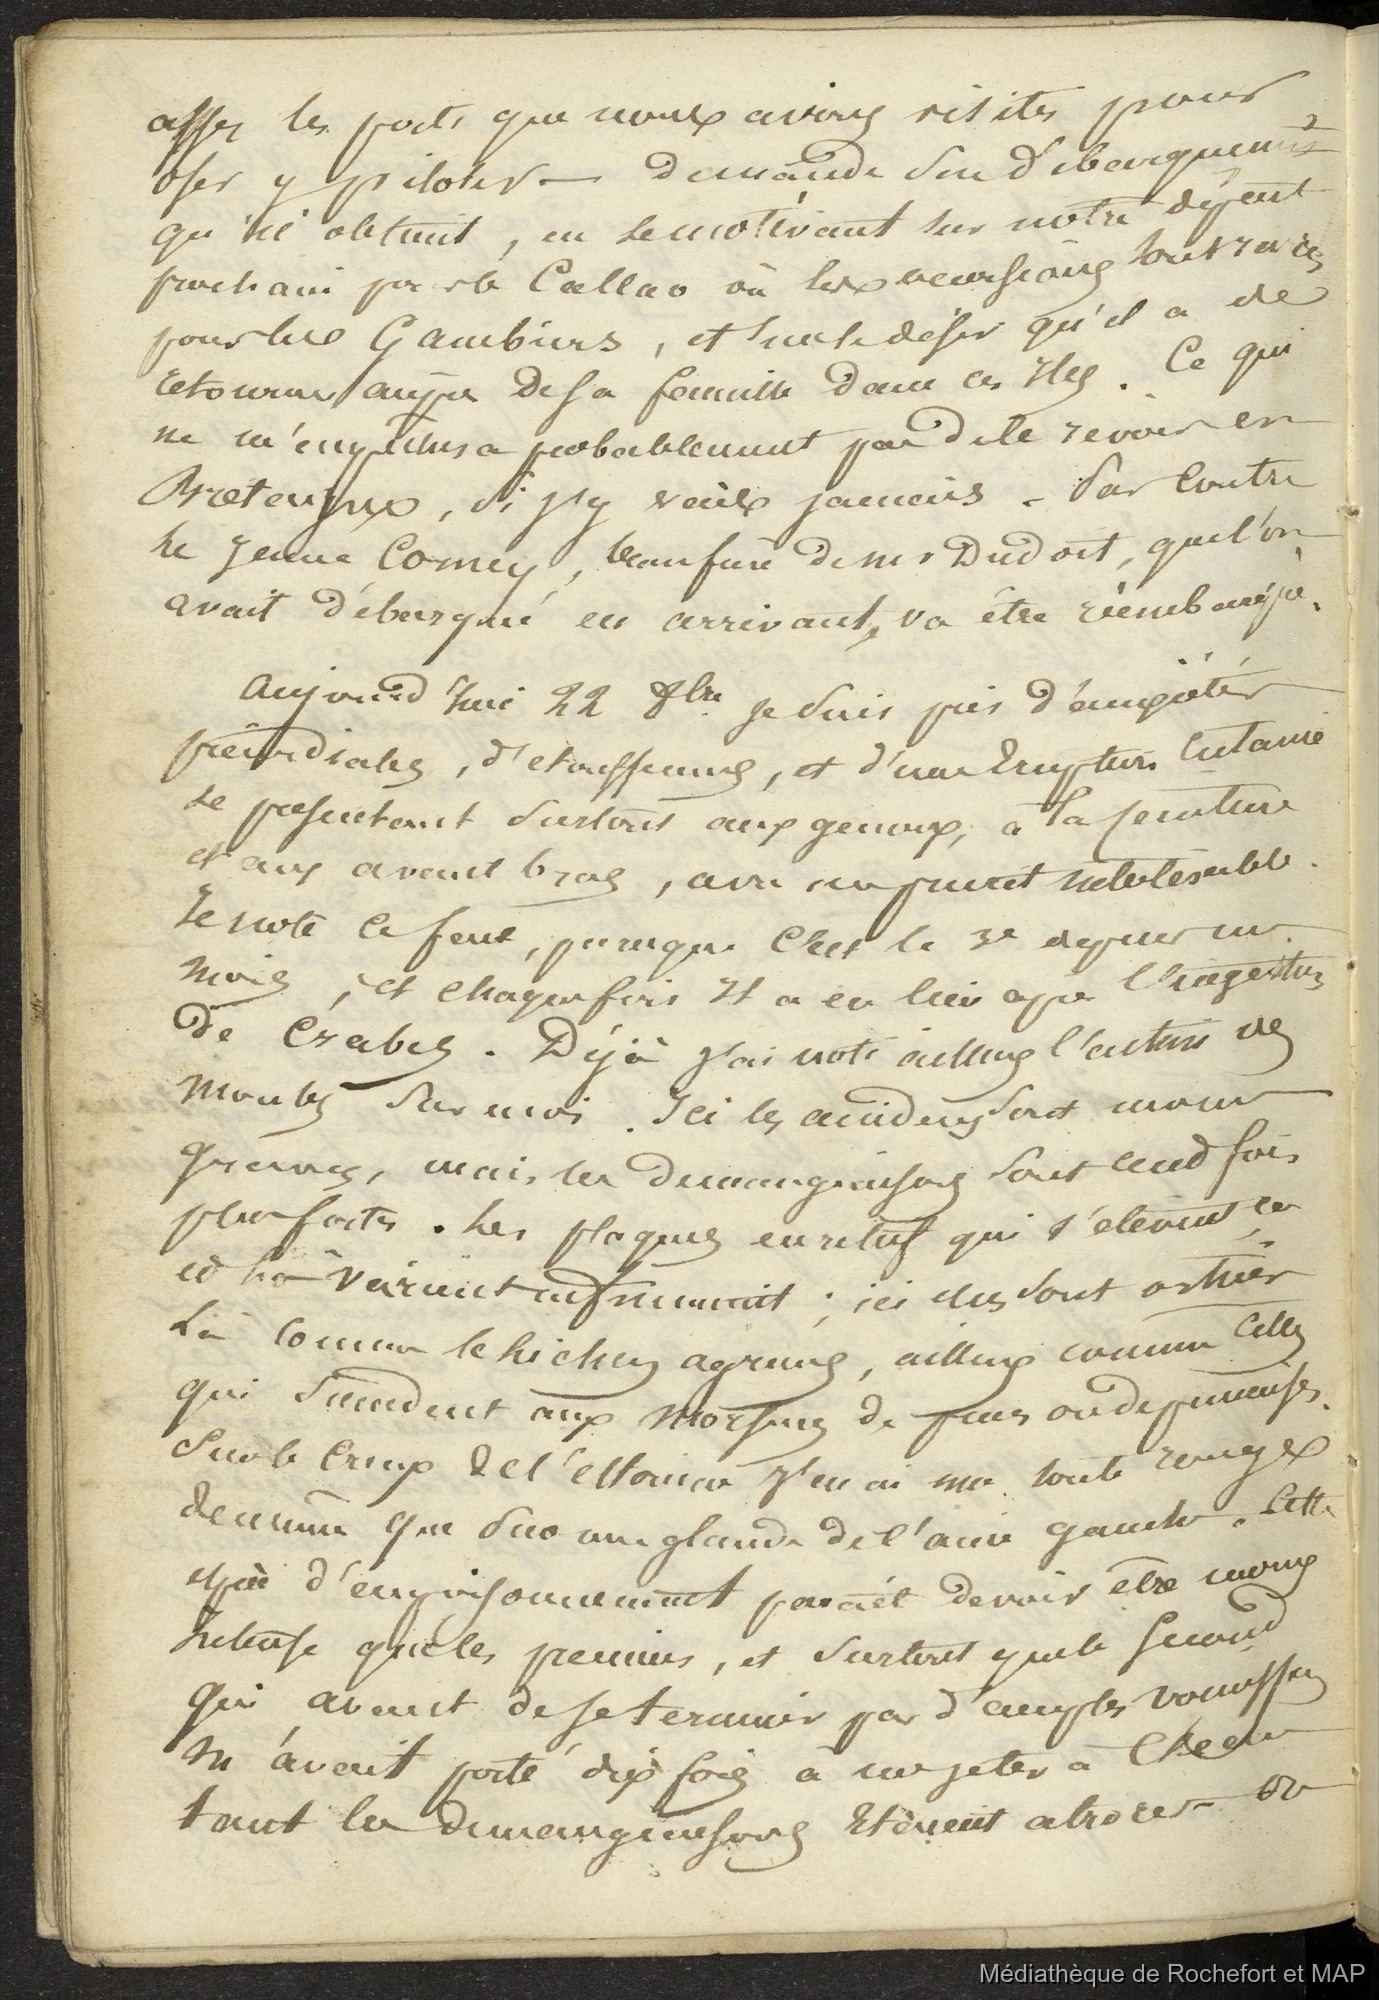 assez les ports que nous avions visités pour
oser y piloter — demande son débarquement
qu'il obtint, en le motivant sur notre départ
prochain pour le Callao où les occasions sont rares
pour les Gambiers, et sur le désir qu'il a de
retourner auprès de sa famille dans ces Iles. Ce qui
ne m'empêchera probablement pas de le revoir en
, si j'y vais jamais. Par contre
le jeune , beau frère de Mr Dudoit, que l'on
avait débarqué en arrivant, va être réembarqué.
Aujourd'hui 22 8bre je suis pris d'anxiétés
précordiales, d'étouffements, et d'une éruption cutanée
se présentant surtout aux genoux, à la ceinture
et aux avant bras, avec un prurit intolérable.
Je note ce fait, parce que c'est la 3e depuis un
mois, et chaque fois il a eu lieu après l'ingestion
de Crabes. Déjà j'ai noté ailleurs l'action des
moules sur moi. Ici les accidens sont moins
graves, mais les demangeaisons sont cent fois
plus fortes. Les plaques en relief qui s'élèvent çà
et là varient infiniment ; ici elles sont ortiées
là comme le lichen agreus, ailleurs comme celles
qui succèdent aux morsures de puces ou de punaises.
Sur le creux de l'estomac j'en ai une toute rouge
de même que sur une glande de l'aine gauche. Cette
espèce d'empoisonnement paraît devoir être moins
que les premiers, et surtout que le second
qui avant de se terminer par d'amples vomissemens
m'avait porté dix fois à me jeter à l'eau
tant les demangeaisons étaient atroces —
Médiathèque de Rochefort et MAP